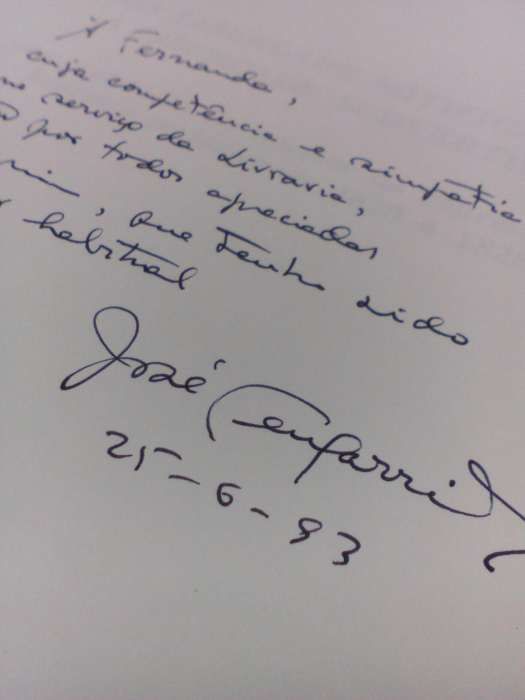 À Fernanda,
cuja competência e simpatia
serviço da Livraria,
por todos apreciadas
, que tenho sido
habitual
José
25-6-93